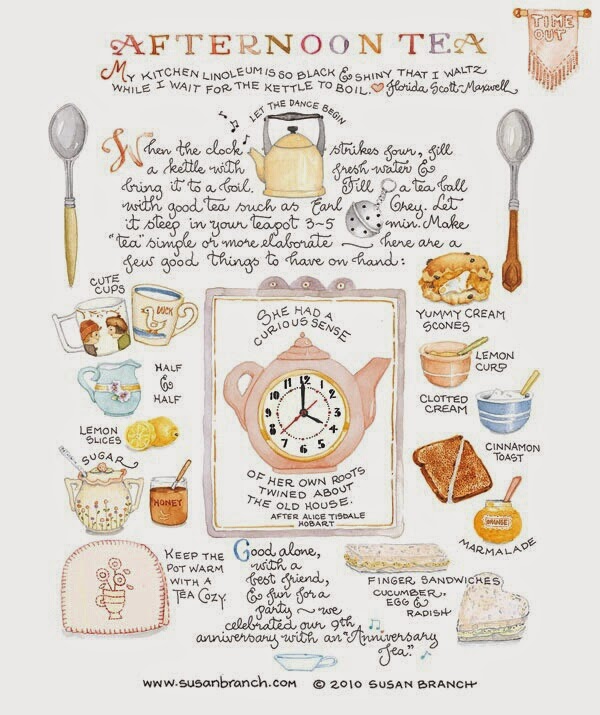 AFTERNOON TEA
TIME
OUT
MY KITCHEN LINOLEUM IS SO BLACK & SHINY THAT I WALTZ
WHILE I WAIT FOR THE KETTLE TO BOIL. ♥ Florida Scott-Maxwell
LET THE DANCE BEGIN
When the clock strikes four, fill
a kettle with fresh water &
bring it to a boil. Fill a tea ball
with good tea such as Earl Grey. Let
it steep in your teapot 3~5 min. Make
"tea" simple or more elaborate — here are a
few good things to have on hand:
CUTE
CUPS
DUCK
HALF
&
HALF
LEMON
SLICES
SUGAR
HONEY
KEEP THE
POT WARM
WITH A
TEA COZY.
SHE HAD A
CURIOUS SENSE
11 12 1
10 2
9 3
8 4
7 6 5
OF HER OWN ROOTS
TWINED ABOUT
THE OLD HOUSE.
AFTER ALICE TISDALE
HOBART
YUMMY CREAM
SCONES
LEMON
CURD
CLOTTED
CREAM
CINNAMON
TOAST
ORANGE
MARMALADE
Good alone,
with a
best friend,
& fun for a
party ~ we
celebrated our 9th
anniversary with an "Anniversary
Tea."
FINGER SANDWICHES
CUCUMBER,
EGG &
RADISH
www.susanbranch.com © 2010 SUSAN BRANCH